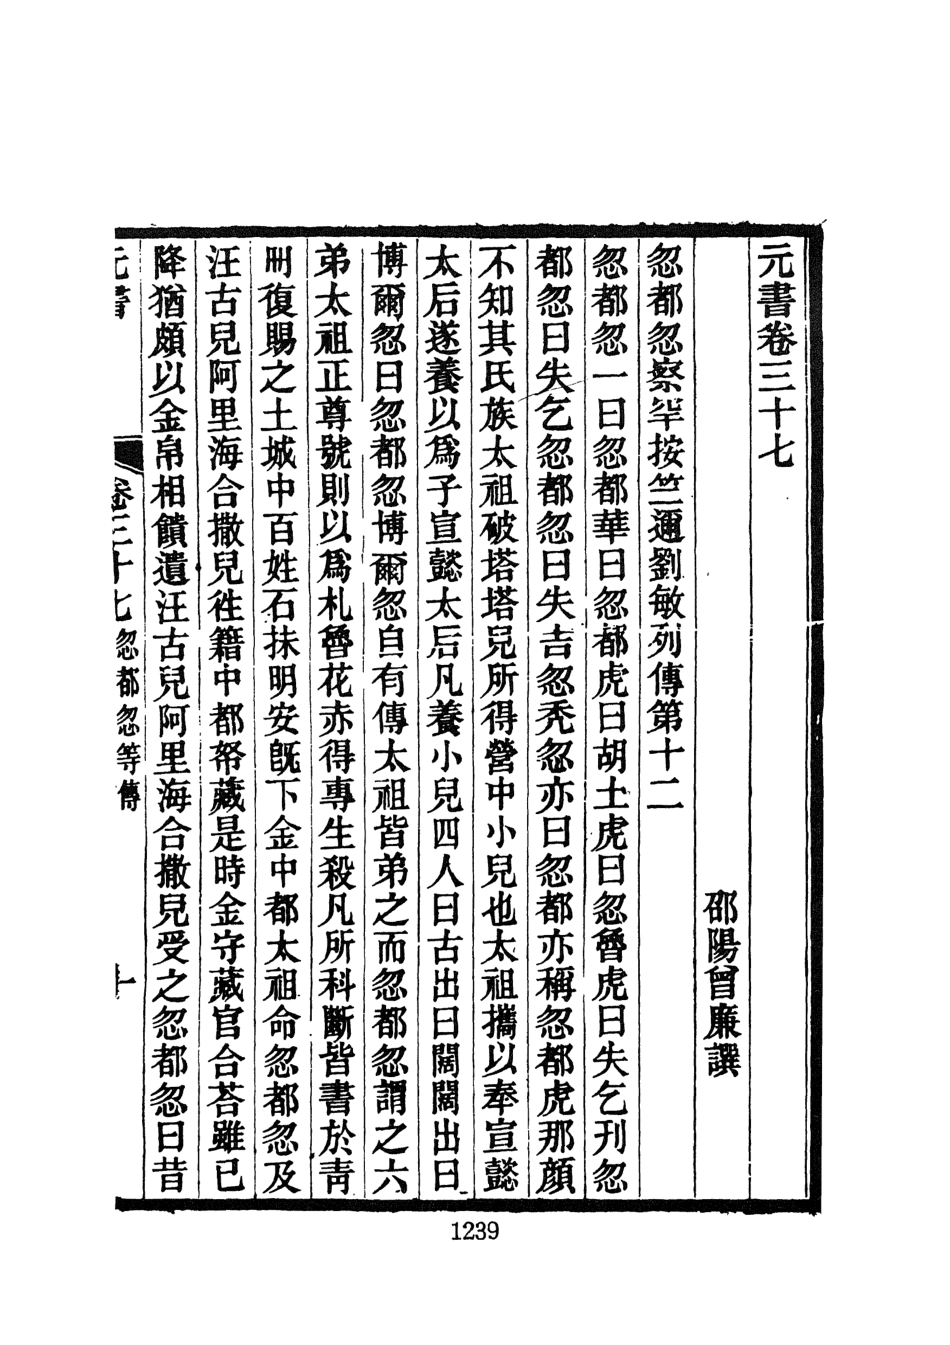 元書卷三十七
邵陽曾廉譔
忽都忽察罕按竺邇劉敏列傳第十二
忽都忽一曰忽都華曰忽都虎曰胡土虎曰忽魯虎曰失乞刊忽
都忽曰失乞忽都忽曰失吉忽禿忽亦曰忽都亦稱忽都虎那顏
不知其氏族太祖破塔塔兒所得營中小兒也太祖攜以奉宣懿
太后遂養以爲子宣懿太后凡養小兒四人曰古出曰闊闊出曰
博爾忽曰忽都忽博爾忽自有傳太祖皆弟之而忽都忽謂之六
弟太祖正尊號則以爲札魯花赤得專生殺凡所科斷皆書於靑
冊復賜之土城中百姓石抹明安旣下金中都太祖命忽都忽及
汪古兒阿里海合撒兒徃籍中都帑藏是時金守藏官合荅雖已
降猶頗以金帛相饋遺汪古兒阿里海合撒兒受之忽都忽曰昔
元書
卷三十七忽都忽等傳
一
1239